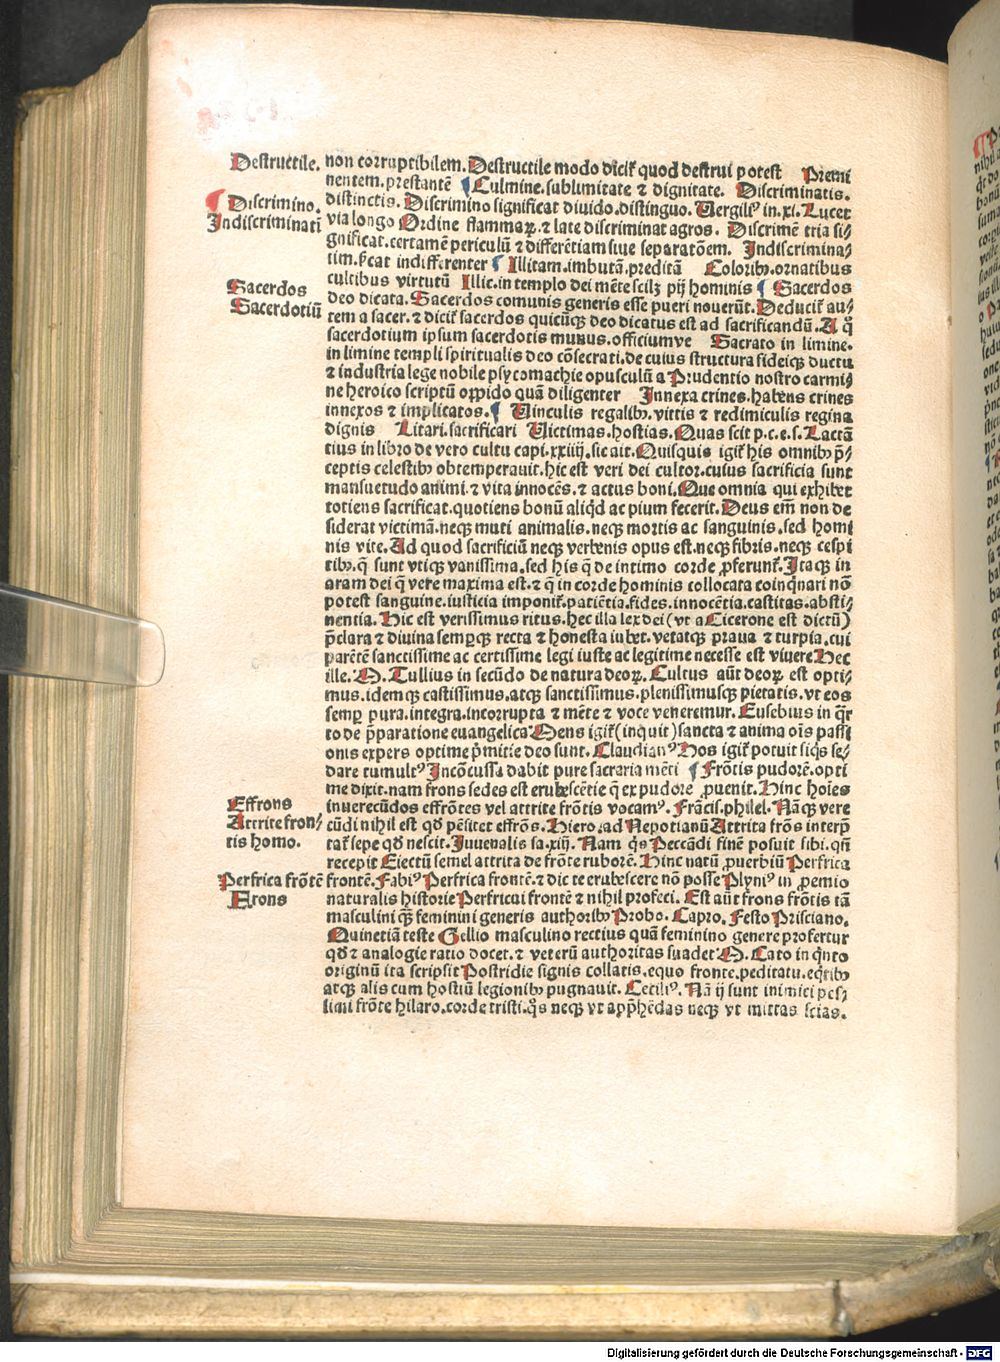 Destructile.
Discrimino.
Indiscriminati
Sacerdos
Sacerdotiū
Effrons
Attrite fron⸗
tis homo.
Perfrica frōtē
Frons
non corruptibilem. Destructile modo dicit̄ quod destrui potest Premi
nentem. prestantē ¶ Culmine. sublimitate ⁊ dignitate. Discriminatis.
distinctis. Discrimino significat diuido. distinguo. Vergiliꝰ in. xi. Lucet
via longo Ordine flammaꝝ. ⁊ late discriminat agros. Discrimē tria si⸗
gnificat. certamē periculū ⁊ differētiam siue separatōem. Indiscrimina⸗
tim. hͨeat indifferenter ¶ Illitam. imbutā. preditā Coloribꝫ. ornatibus
cultibus virtutū Illic. in templo dei mēte scilꝫ pij hominis ¶ Sacerdos
deo dicata. Sacerdos comunis generis esse pueri nouerūt. Deducit̄ au⸗
tem a sacer. ⁊ dicit̄ sacerdos quicūqꝫ deo dicatus est ad sacrificandū. A q̊
sacerdotium ipsum sacerdotis munus. officiumve Sacrato in limine.
in limine templi spiritualis deo cōsecrati. de cuius structura fideiqꝫ ductu
⁊ industria lege nobile psycomachie opusculū a Prudentio nostro carmi⸗
ne heroico scriptū oppido quā diligenter Innexa crines. habens crines
innexos ⁊ implicatos. ¶ Vinculis regalibꝫ. vittis ⁊ redimiculis regina
dignis Litari. sacrificari Victimas. hostias. Quas scit p. c. e. s. Lactā
tius in libro de vero cultu capi. xxiiij. sic ait. Quisquis igit̄ his omnibꝫ p̄⸗
ceptis celestibꝫ obtemperauit. hic est veri dei cultor. cuius sacrificia sunt
mansuetudo animi. ⁊ vita innocēs. ⁊ actus boni. Que omnia qui exhibet
totiens sacrificat. quotiens bonū aliqd ac pium fecerit. Deus em̄ non de
siderat victimā. neqꝫ muti animalis. neqꝫ mortis ac sanguinis. sed homi
nis vite. Ad quod sacrificiū neqꝫ verbenis opus est. neqꝫ fibris. neqꝫ cespi
tibꝫ. q̄ sunt vtiqꝫ vanissima. sed his q̄ de intimo corde ꝓferunt̄. Itaqꝫ in
aram dei q̄ vere maxima est. ⁊ q̄ in corde hominis collocata coinq̄nari nō
potest sanguine. iusticia imponit̄. patiētia. fides. innocētia. castitas. absti⸗
nentia. Hic est verissimus ritus. hec illa lex dei (vt a Cicerone est dictū)
p̄clara ⁊ diuina semꝑqꝫ recta ⁊ honesta iubet. vetatqꝫ praua ⁊ turpia. cui
parētē sanctissime ac certissime legi iuste ac legitime necesse est viuere Hec
ille. M. Tullius in secūdo de natura deoꝝ. Cultus aūt deoꝝ est opti⸗
mus. idemqꝫ castissimus. atqꝫ sanctissimus. plenissimusqꝫ pietatis. vt eos
semꝑ pura. integra. incorrupta ⁊ mēte ⁊ voce veneremur. Eusebius in q̄r
to de p̄paratione euangelica Mens igit̄ (inquit) sancta ⁊ anima oīs passi
onis expers optime p̄mitie deo sunt. Claudianꝰ Hos igit̄ potuit siq̄s se⸗
dare tumultꝰ Incōcussa dabit pure sacraria mēti ¶ Frōtis pudorē. opti
me dixit. nam frons sedes est erubescētie q̄ ex pudore ꝓuenit. Hinc hoīes
inuerecūdos effrōtes vel attrite frōtis vocamꝰ. Frācis. philel. Nāqꝫ vere
cūdi nihil est qd̄ pēsitet effrōs. Hiero. ad Nepotianū Attrita frōs interp̄
tat̄ sepe qd̄ nescit. Iuuenalis sa. xiij. Nam q̄s Peccādi finē posuit sibi. qn̄
recepit Eiectū semel attrita de frōte ruborē. Hinc natū ꝓuerbiū Perfrica
frontē. Fabiꝰ Perfrica frontē. ⁊ dic te erubescere nō posse Plyniꝰ in ꝓemio
naturalis historie Perfricui frontē ⁊ nihil profeci. Est aūt frons frōtis tā
masculini qꝫ feminini generis authoribꝫ Probo. Capro. Festo Prisciano.
Quinetiā teste Gellio masculino rectius quā feminino genere profertur
qd̄ ⁊ analogie ratio docet. ⁊ veterū authoritas suadet M. Cato in q̄nto
originū ita scripsit Postridie signis collatis. equo fronte. peditatu. eq̄tibꝫ
atqꝫ alis cum hostiū legionibꝫ pugnauit. Ceciliꝰ. Nā ij sunt inimici pes⸗
simi frōte hilaro. corde tristi. q̄s neqꝫ vt app̄hēdas neqꝫ vt mittas scias.
Digitalisierung gefördert durch die Deutsche Forschungsgemeinschaft - DFG